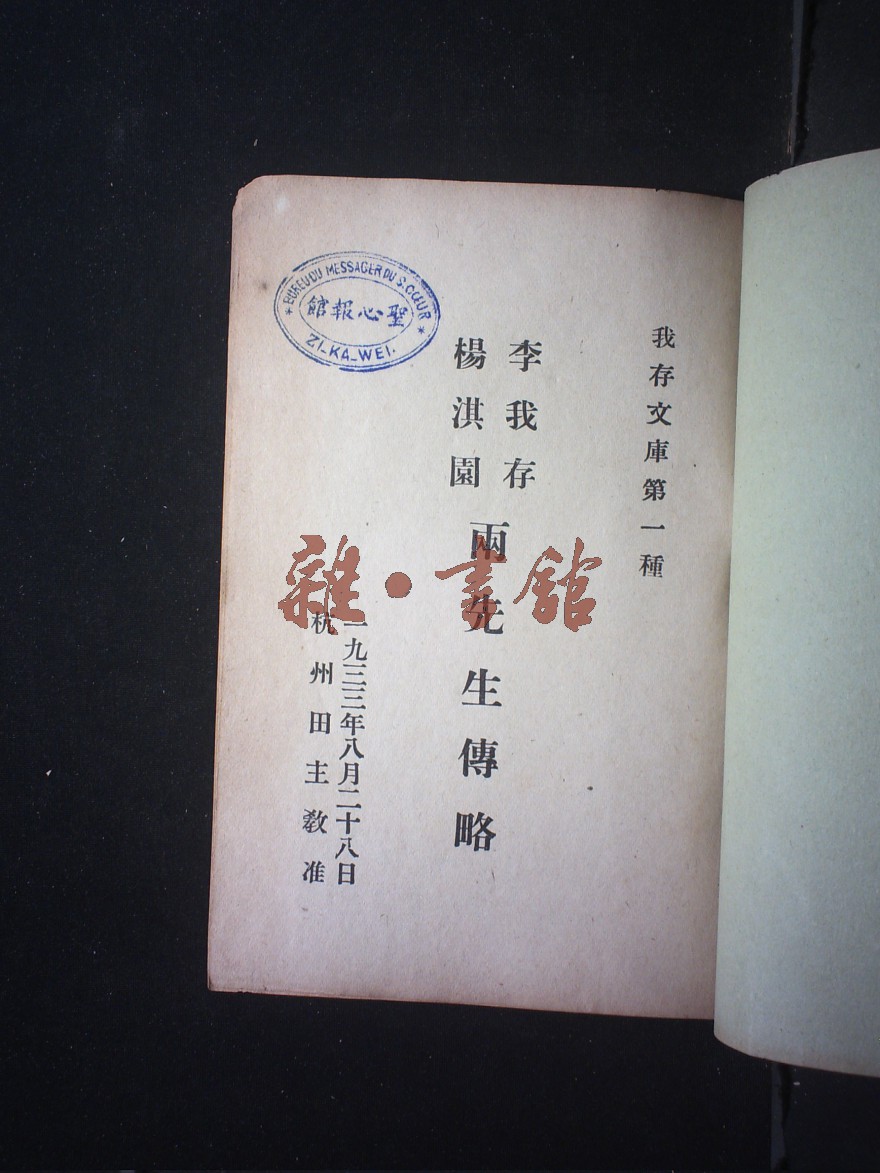 我存文庫第一種
李我存
楊淇園
兩先生傳略
一九三三年八月二十八日
杭州田主教准
BUREAU DU MESSAGER DU S. CŒUR
聖心報館
ZI-KA-WEI.
雜·書館